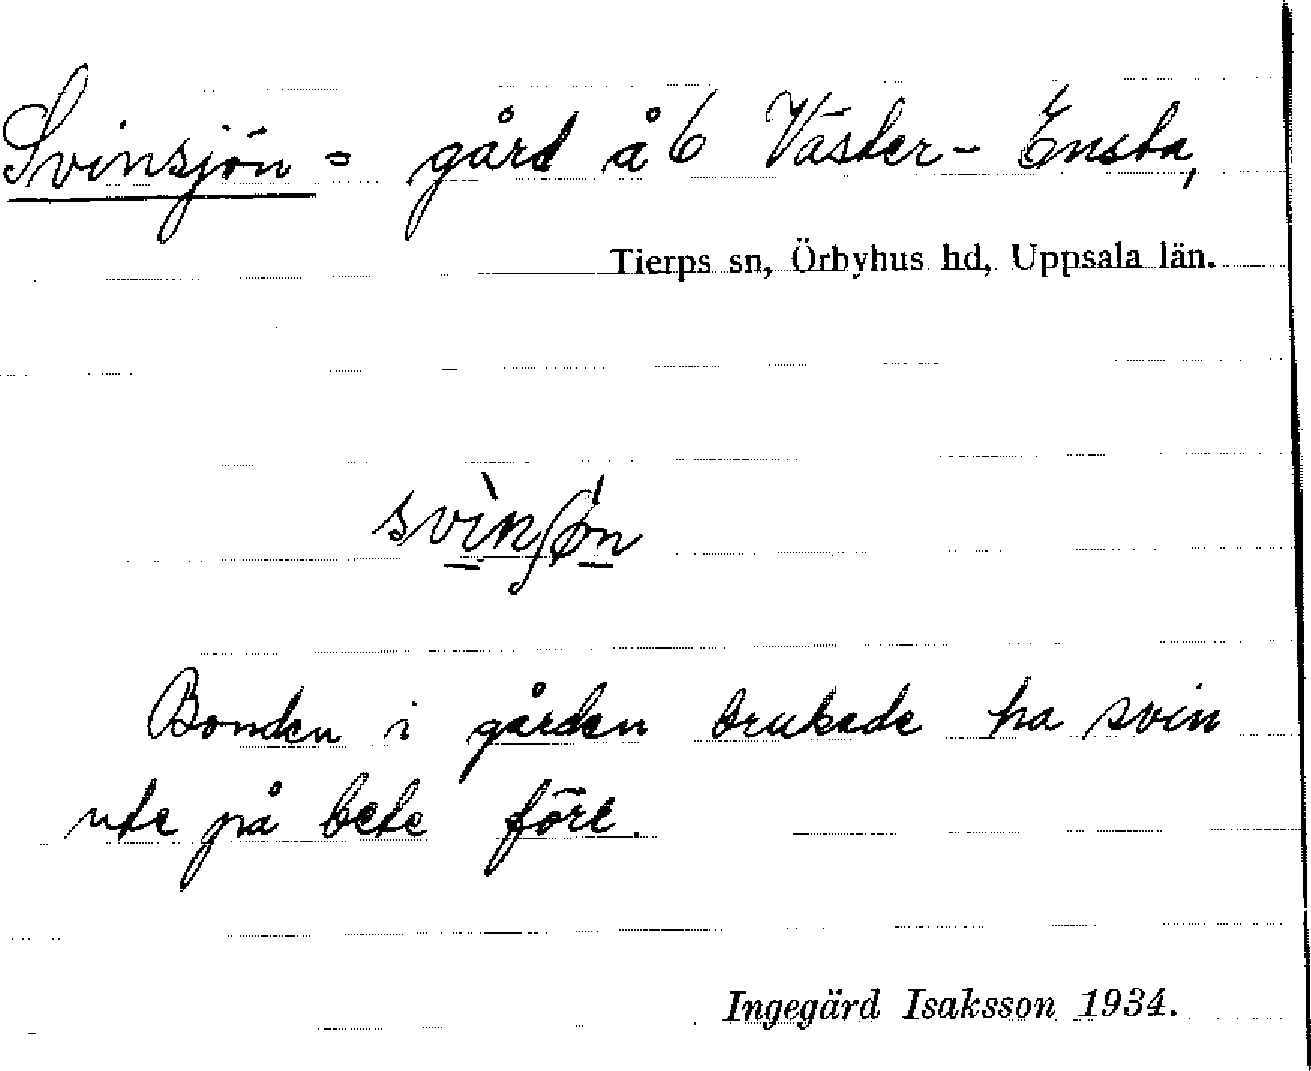 Svinsjön = gård å 6 Väster-Ensta,
Tierps sn, Örbyhus hd, Uppsala län.
svìnʃön
Bonden i gården brukade ha svin
ute på bete förr.
Ingegärd Isaksson 1934.